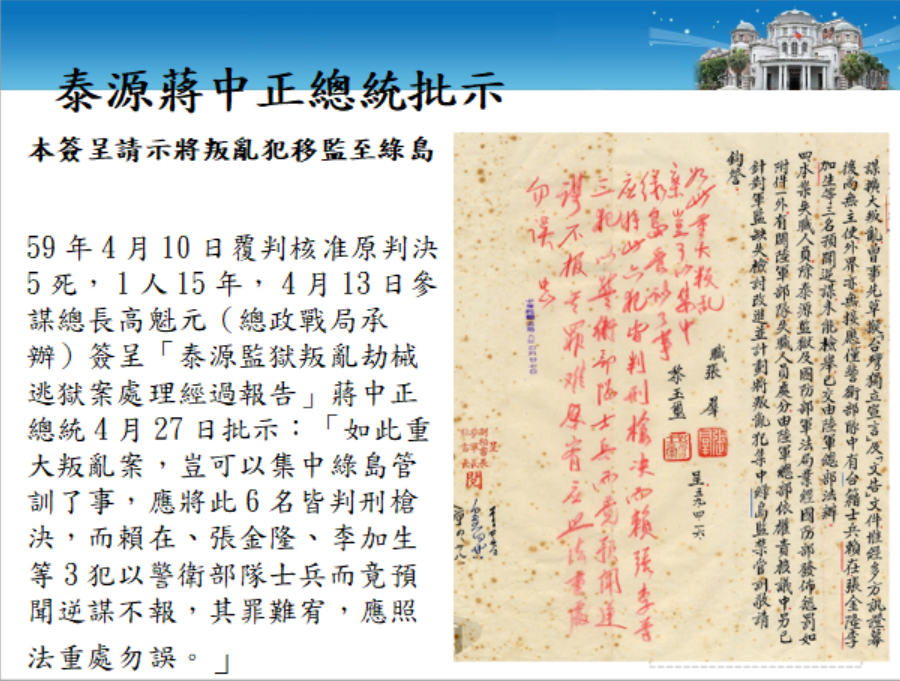 泰源蔣中正總統批示
本簽呈請示將叛亂犯移監至綠島
59 年 4 月 10 日覆判核准原判決
5 死，1 人 15 年，4 月 13 日參
謀總長高魁元（總政戰局承
辦）簽呈「泰源監獄叛亂劫械
逃獄案處理經過報告」蔣中正
總統 4 月 27 日批示：「如此重
大叛亂案，豈可以集中綠島管
訓了事，應將此 6 名皆判刑槍
決，而賴在、張金隆、李加生
等 3 犯以警衛部隊士兵而竟預
聞逆謀不報，其罪難宥，應照
法重處勿誤。」
謀擴大叛亂曾事先草擬「台灣獨立宣言」及「文告」文件惟經多方訊證幕
後尚無主使外界亦無接應僅警衛部隊中有台籍士兵賴在張金隆李
加生等三名預聞逆謀未能檢舉已交由陸軍總部法辦
四本案失職人員除泰源監獄及國防部軍法局業經國防部發佈懲罰如
附件一外有關陸軍部隊失職人員處分由陸軍總部依權責核議中另已
針對軍監缺失檢討改進並計劃將叛亂犯集中綠島監禁管訓敬請
鈞詧
職張 羣
如此重大叛亂
案豈可以集中
綠島管訓了事
應將此六犯皆判刑槍决而賴張李等
三犯以警衛部隊士兵而竟預聞逆
謀不报其罪难原宥应照法重處
勿误